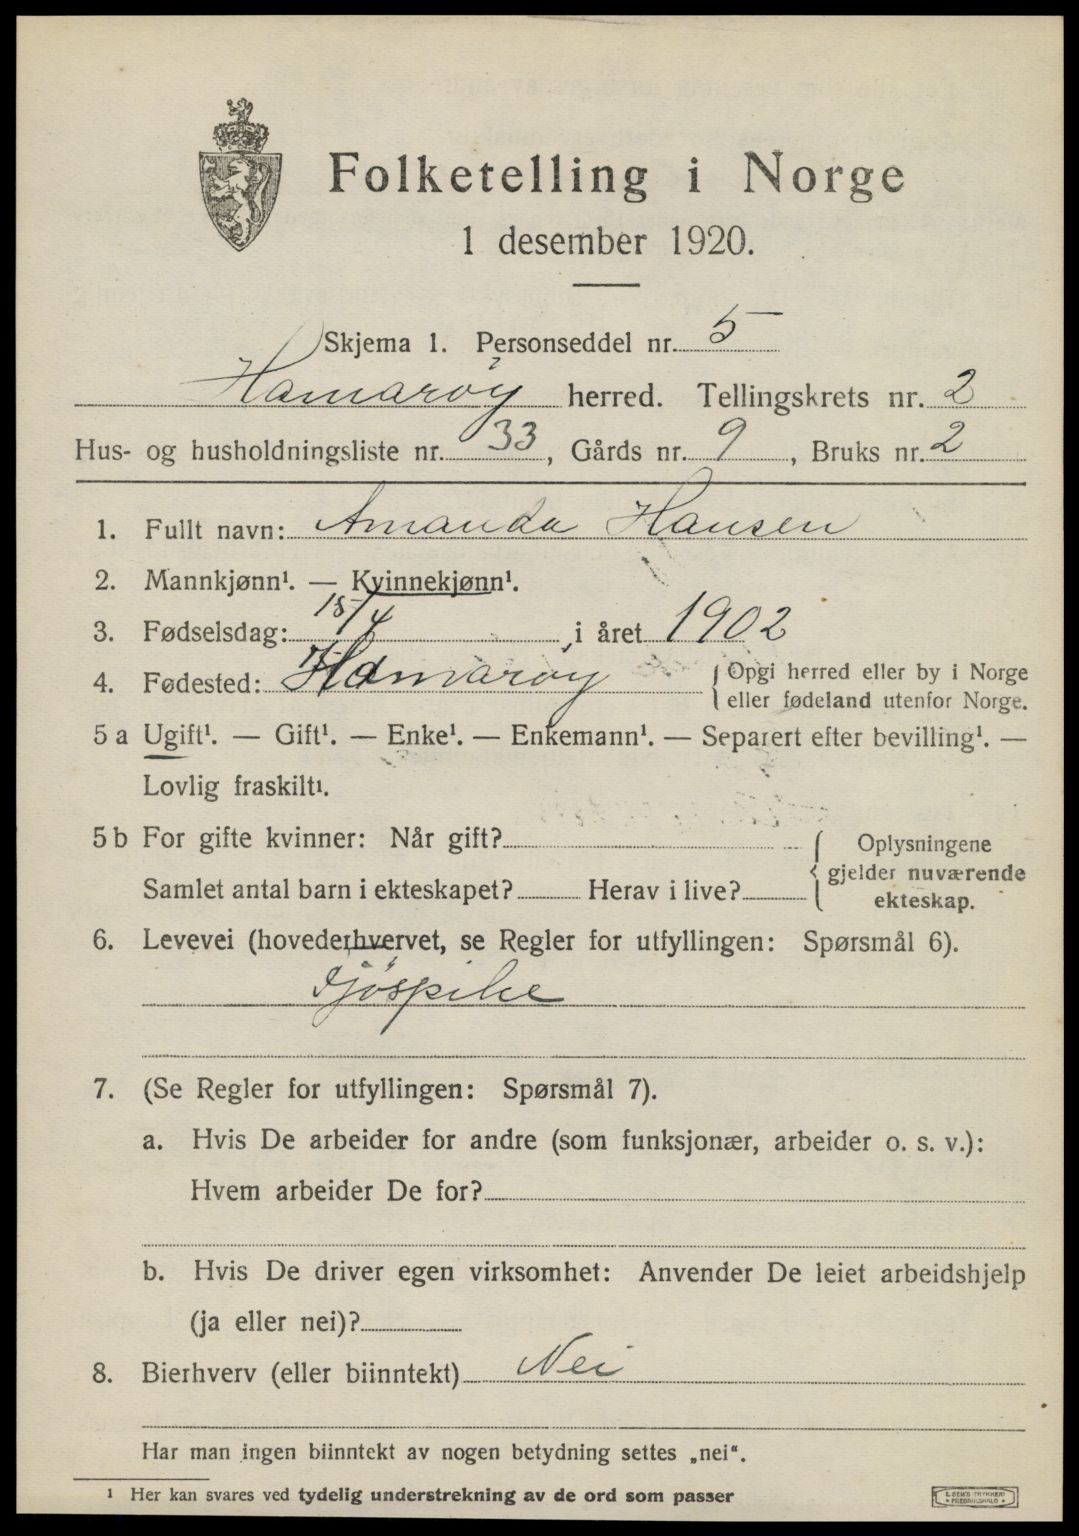 Folketelling i Norge
1 desember 1920.
Skjema 1. Personseddel nr. 5
Hamarøy herred. Tellingskrets nr. 2
Hus- og husholdningsliste nr. 33, Gårds nr. 9, Bruks nr. 2
1. Fullt navn: Amanda Hansen
2. Mannkjønn¹. — Kvinnekjønn¹.
3. Fødselsdag: 15/4 i året 1902
4. Fødested: Hamarøy { Opgi herred eller by i Norge
eller fødeland utenfor Norge.
5 a Ugift¹. — Gift¹. — Enke¹. — Enkemann¹. — Separert efter bevilling¹. —
Lovlig fraskilt¹.
5 b For gifte kvinner: Når gift? { Oplysningene
Samlet antal barn i ekteskapet? Herav i live? gjelder nuværende
ekteskap.
6. Levevei (hovederhvervet, se Regler for utfyllingen: Spørsmål 6).
7. (Se Regler for utfyllingen: Spørsmål 7).
a. Hvis De arbeider for andre (som funksjonær, arbeider o. s. v.):
Hvem arbeider De for?
b. Hvis De driver egen virksomhet: Anvender De leiet arbeidshjelp
(ja eller nei)?
8. Bierhverv (eller biinntekt) Nei
Har man ingen biinntekt av nogen betydning settes „nei“.
¹ Her kan svares ved tydelig understrekning av de ord som passer